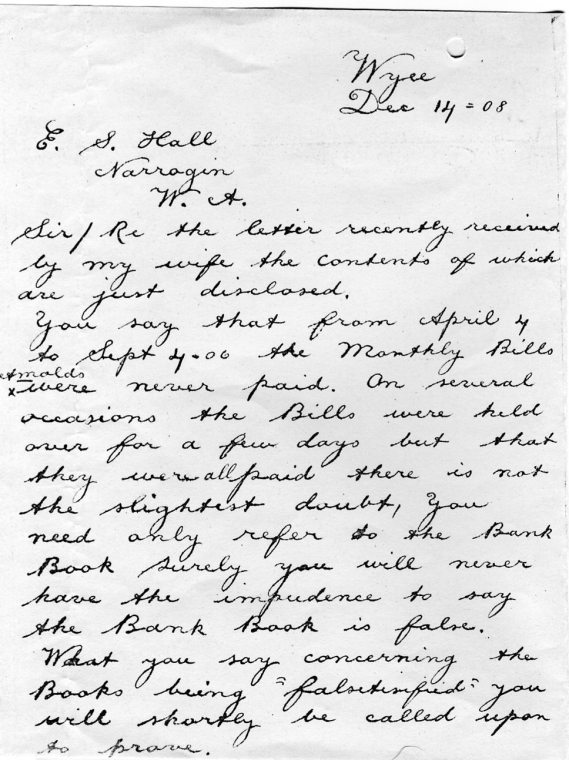 Wyee
Dec 14 = 08
E. S. Hall
Narrogin
W. A.
Sir/ Re the letter recently received
by my wife the contents of which
are just disclosed.
You say that from April 4
to Sept 4-00 the Monthly Bills
x were never paid. On several
occasions the Bills were held
over for a few days but that
they were all paid there is not
the slightest doubt, You
need only refer to the Bank
Book surely you will never
have the impudence to say
the Bank Book is false.
What you say concerning the
Books being "falsetisified" you
will shortly be called upon
to prove.